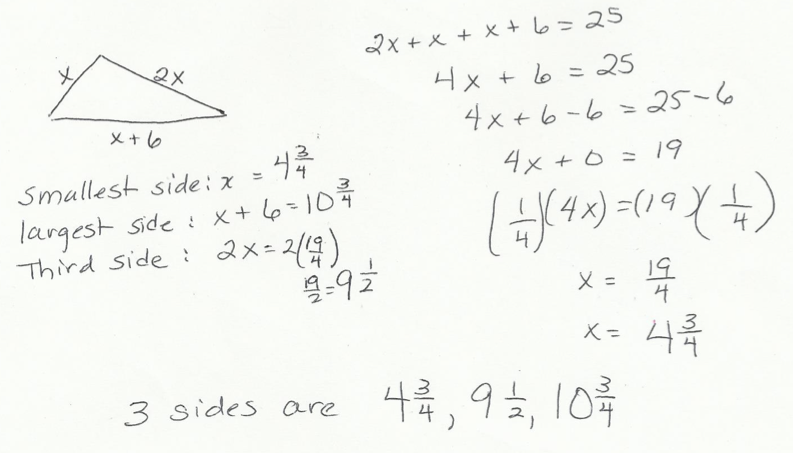 x 2x
x + 6
Smallest side: x = 4 3/4
largest side : x + 6 = 10 3/4
Third side : 2x = 2(19/4)
19/2 = 9 1/2
2x + x + x + 6 = 25
4x + 6 = 25
4x + 6 - 6 = 25 - 6
4x + 0 = 19
(1/4)(4x) = (19)(1/4)
x = 19/4
x = 4 3/4
3 sides are 4 3/4, 9 1/2, 10 3/4